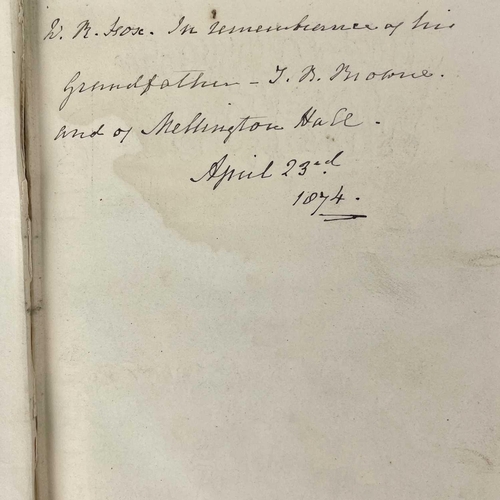 W. R. Fox. In remembrance of his
Grandfather - T. B. Browne.
and of Mellington Hall.
April 23rd
1874.